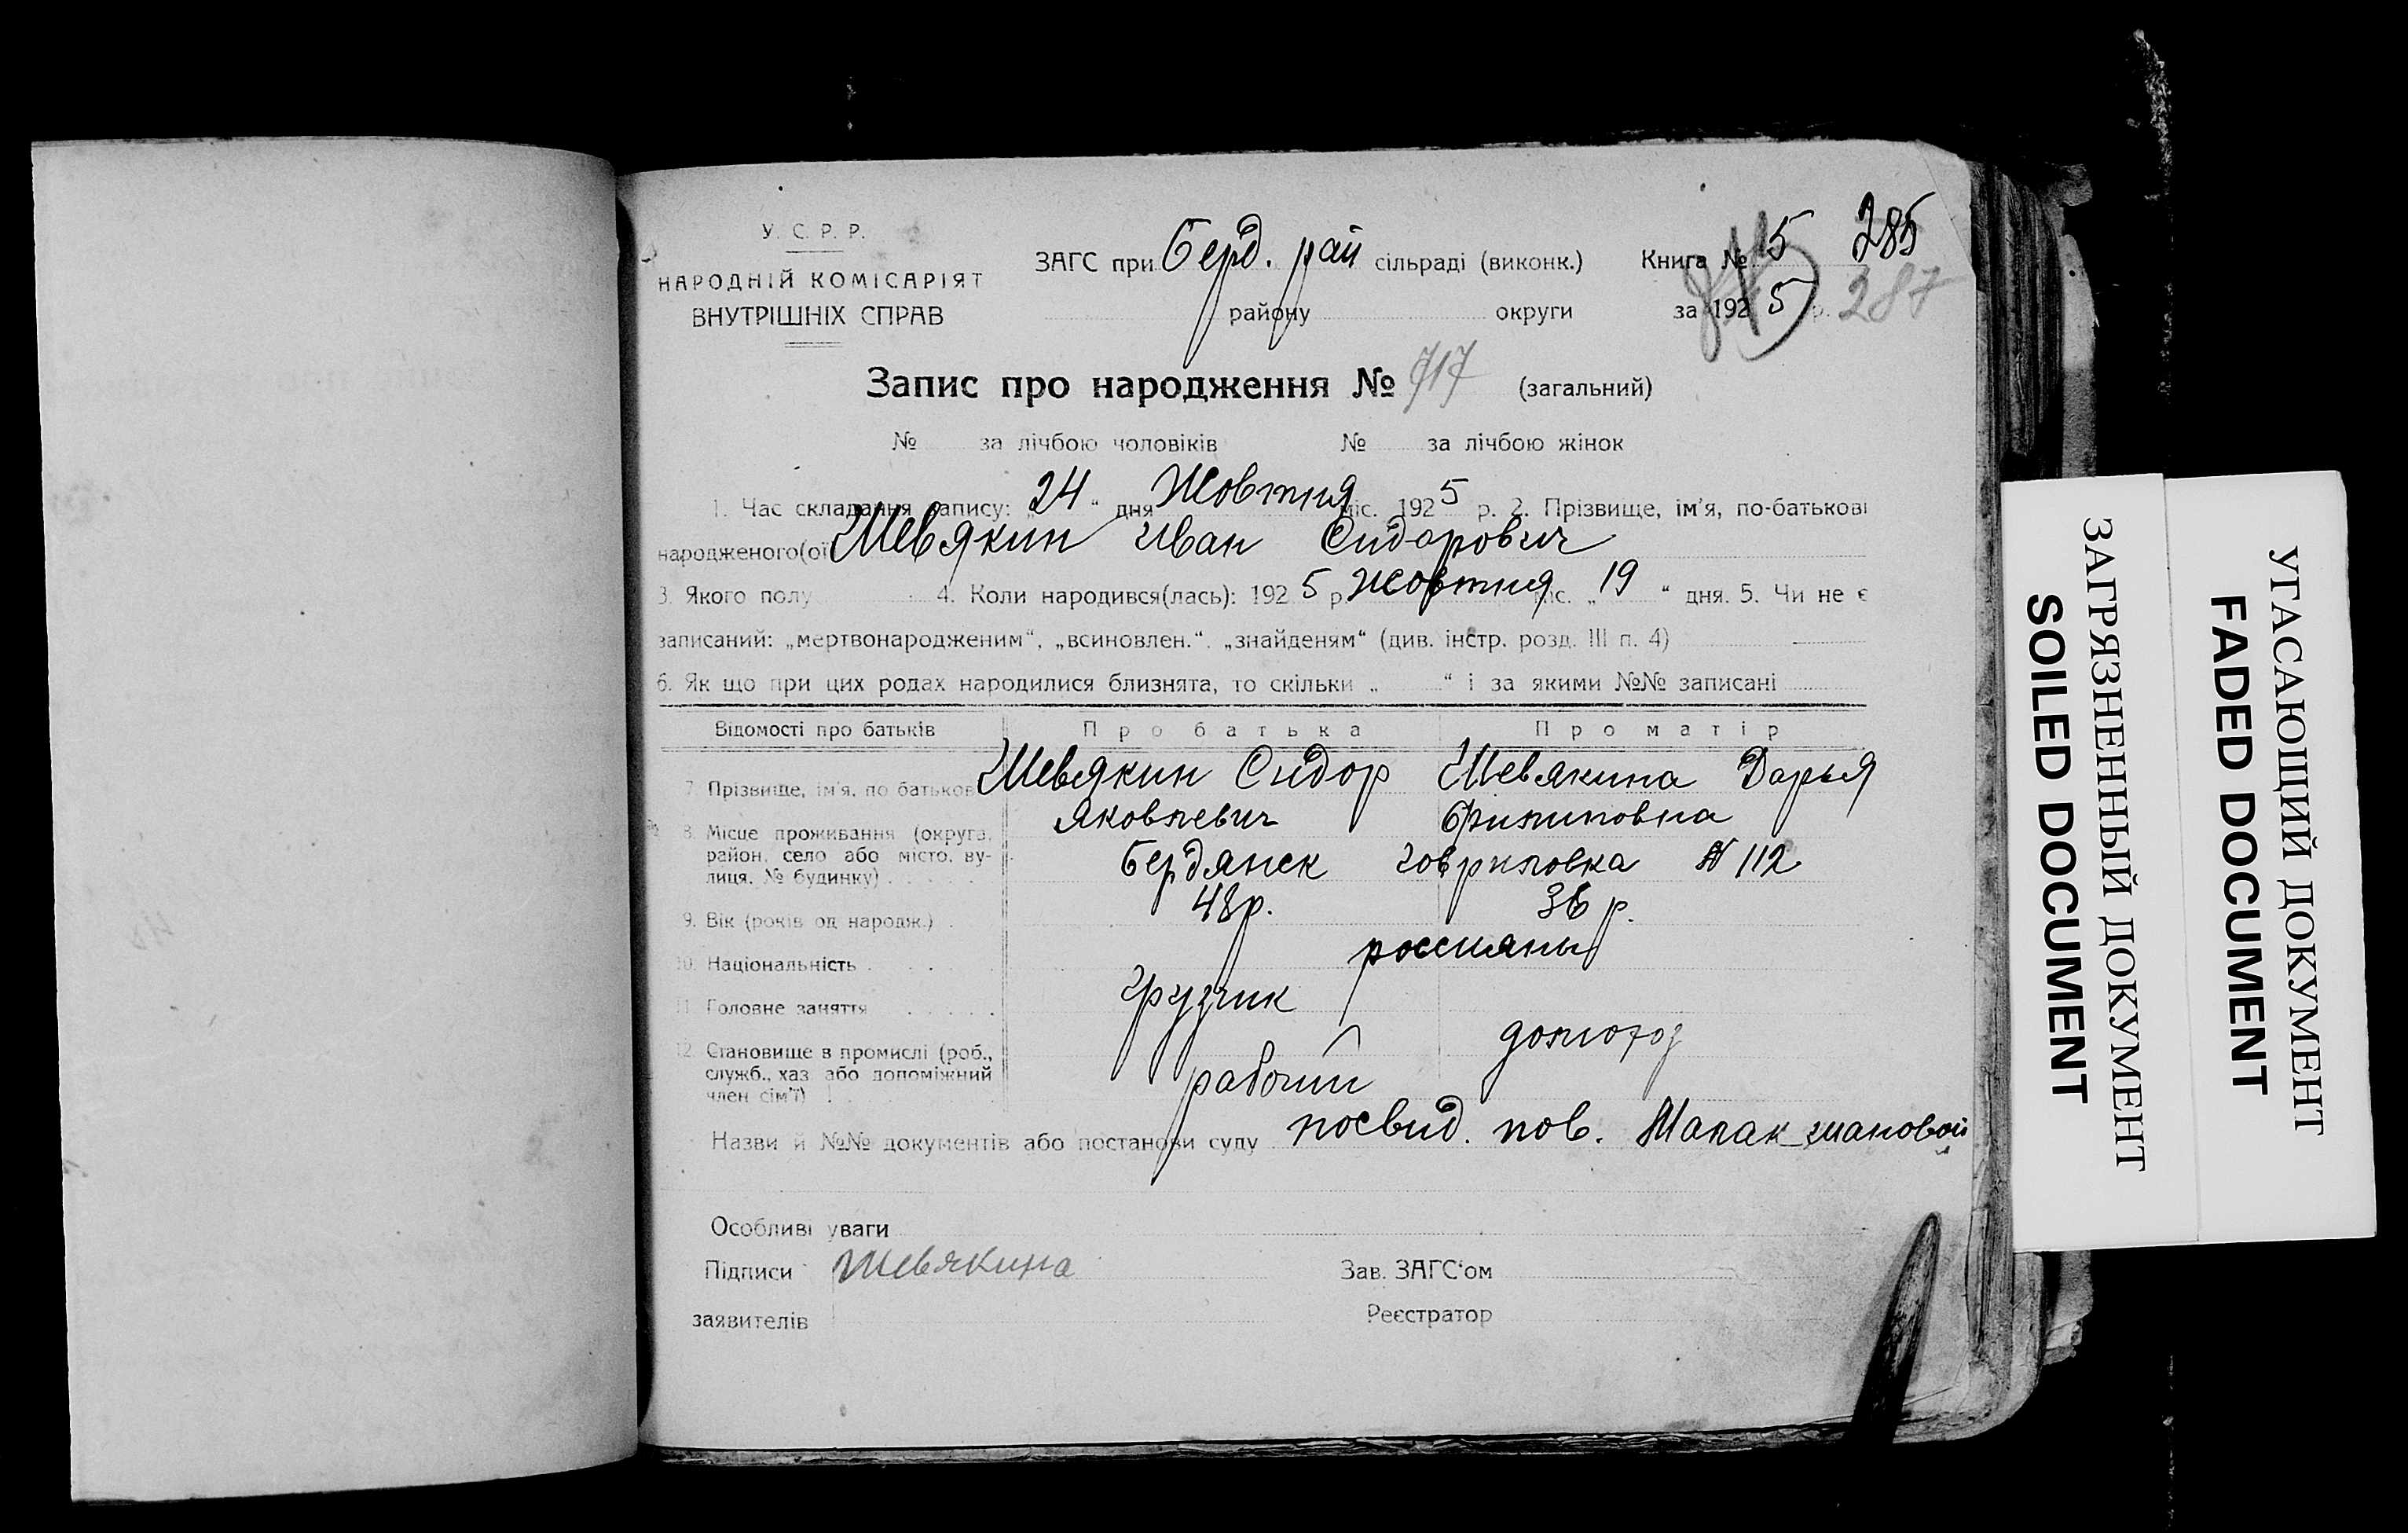 У. С. Р. Р.
НАРОДНІЙ КОМІСАРІЯТ
ВНУТРІШНІХ СПРАВ
ЗАГС при Берд. рай сільраді (виконк.) Книга № 15 285
району округи за 1925 р. 287
Запис про народження № 717 (загальний)
№ за лічбою чоловіків № за лічбою жінок
1. Час складання запису: „24“ дня Жовтня міс. 1925 р. 2. Прізвище, ім'я, по-батькові
народженого(ої Шевякин Иван Сидорович
3. Якого полу 4. Коли народився(лась): 1925 р. Жовтня міс. „19“ дня. 5. Чи не є
записаний: „мертвонародженим“, „всиновлен.“. „знайденям“ (див. інстр. розд. III п. 4)
6. Як що при цих родах народилися близнята, то скільки „ “ і за якими №№ записані
Відомості про батьків Про батька Про матір
7. Прізвище, ім'я, по батькові Шевякин Сидор Шевякина Дарья
Яковлевич Филиповна
8. Місце проживання (округа,
район, село або місто, ву-
лиця, № будинку) Бердянск Говриловка № 112
9. Вік (років од народж.) 48 р. 36 р.
10. Національність россияны
11. Головне заняття Грузчик
12. Становище в промислі (роб.,
служб., хаз або допоміжний
член сім'ї) рабочий домохоз
Назви й №№ документів або постанови суду посвид. пов.
Особливі уваги
Підписи Шевякина Зав. ЗАГС'ом
заявителів Реєстратор
ЗАГРЯЗНЕННЫЙ ДОКУМЕНТ
SOILED DOCUMENT
УГАСАЮЩИЙ ДОКУМЕНТ
FADED DOCUMENT